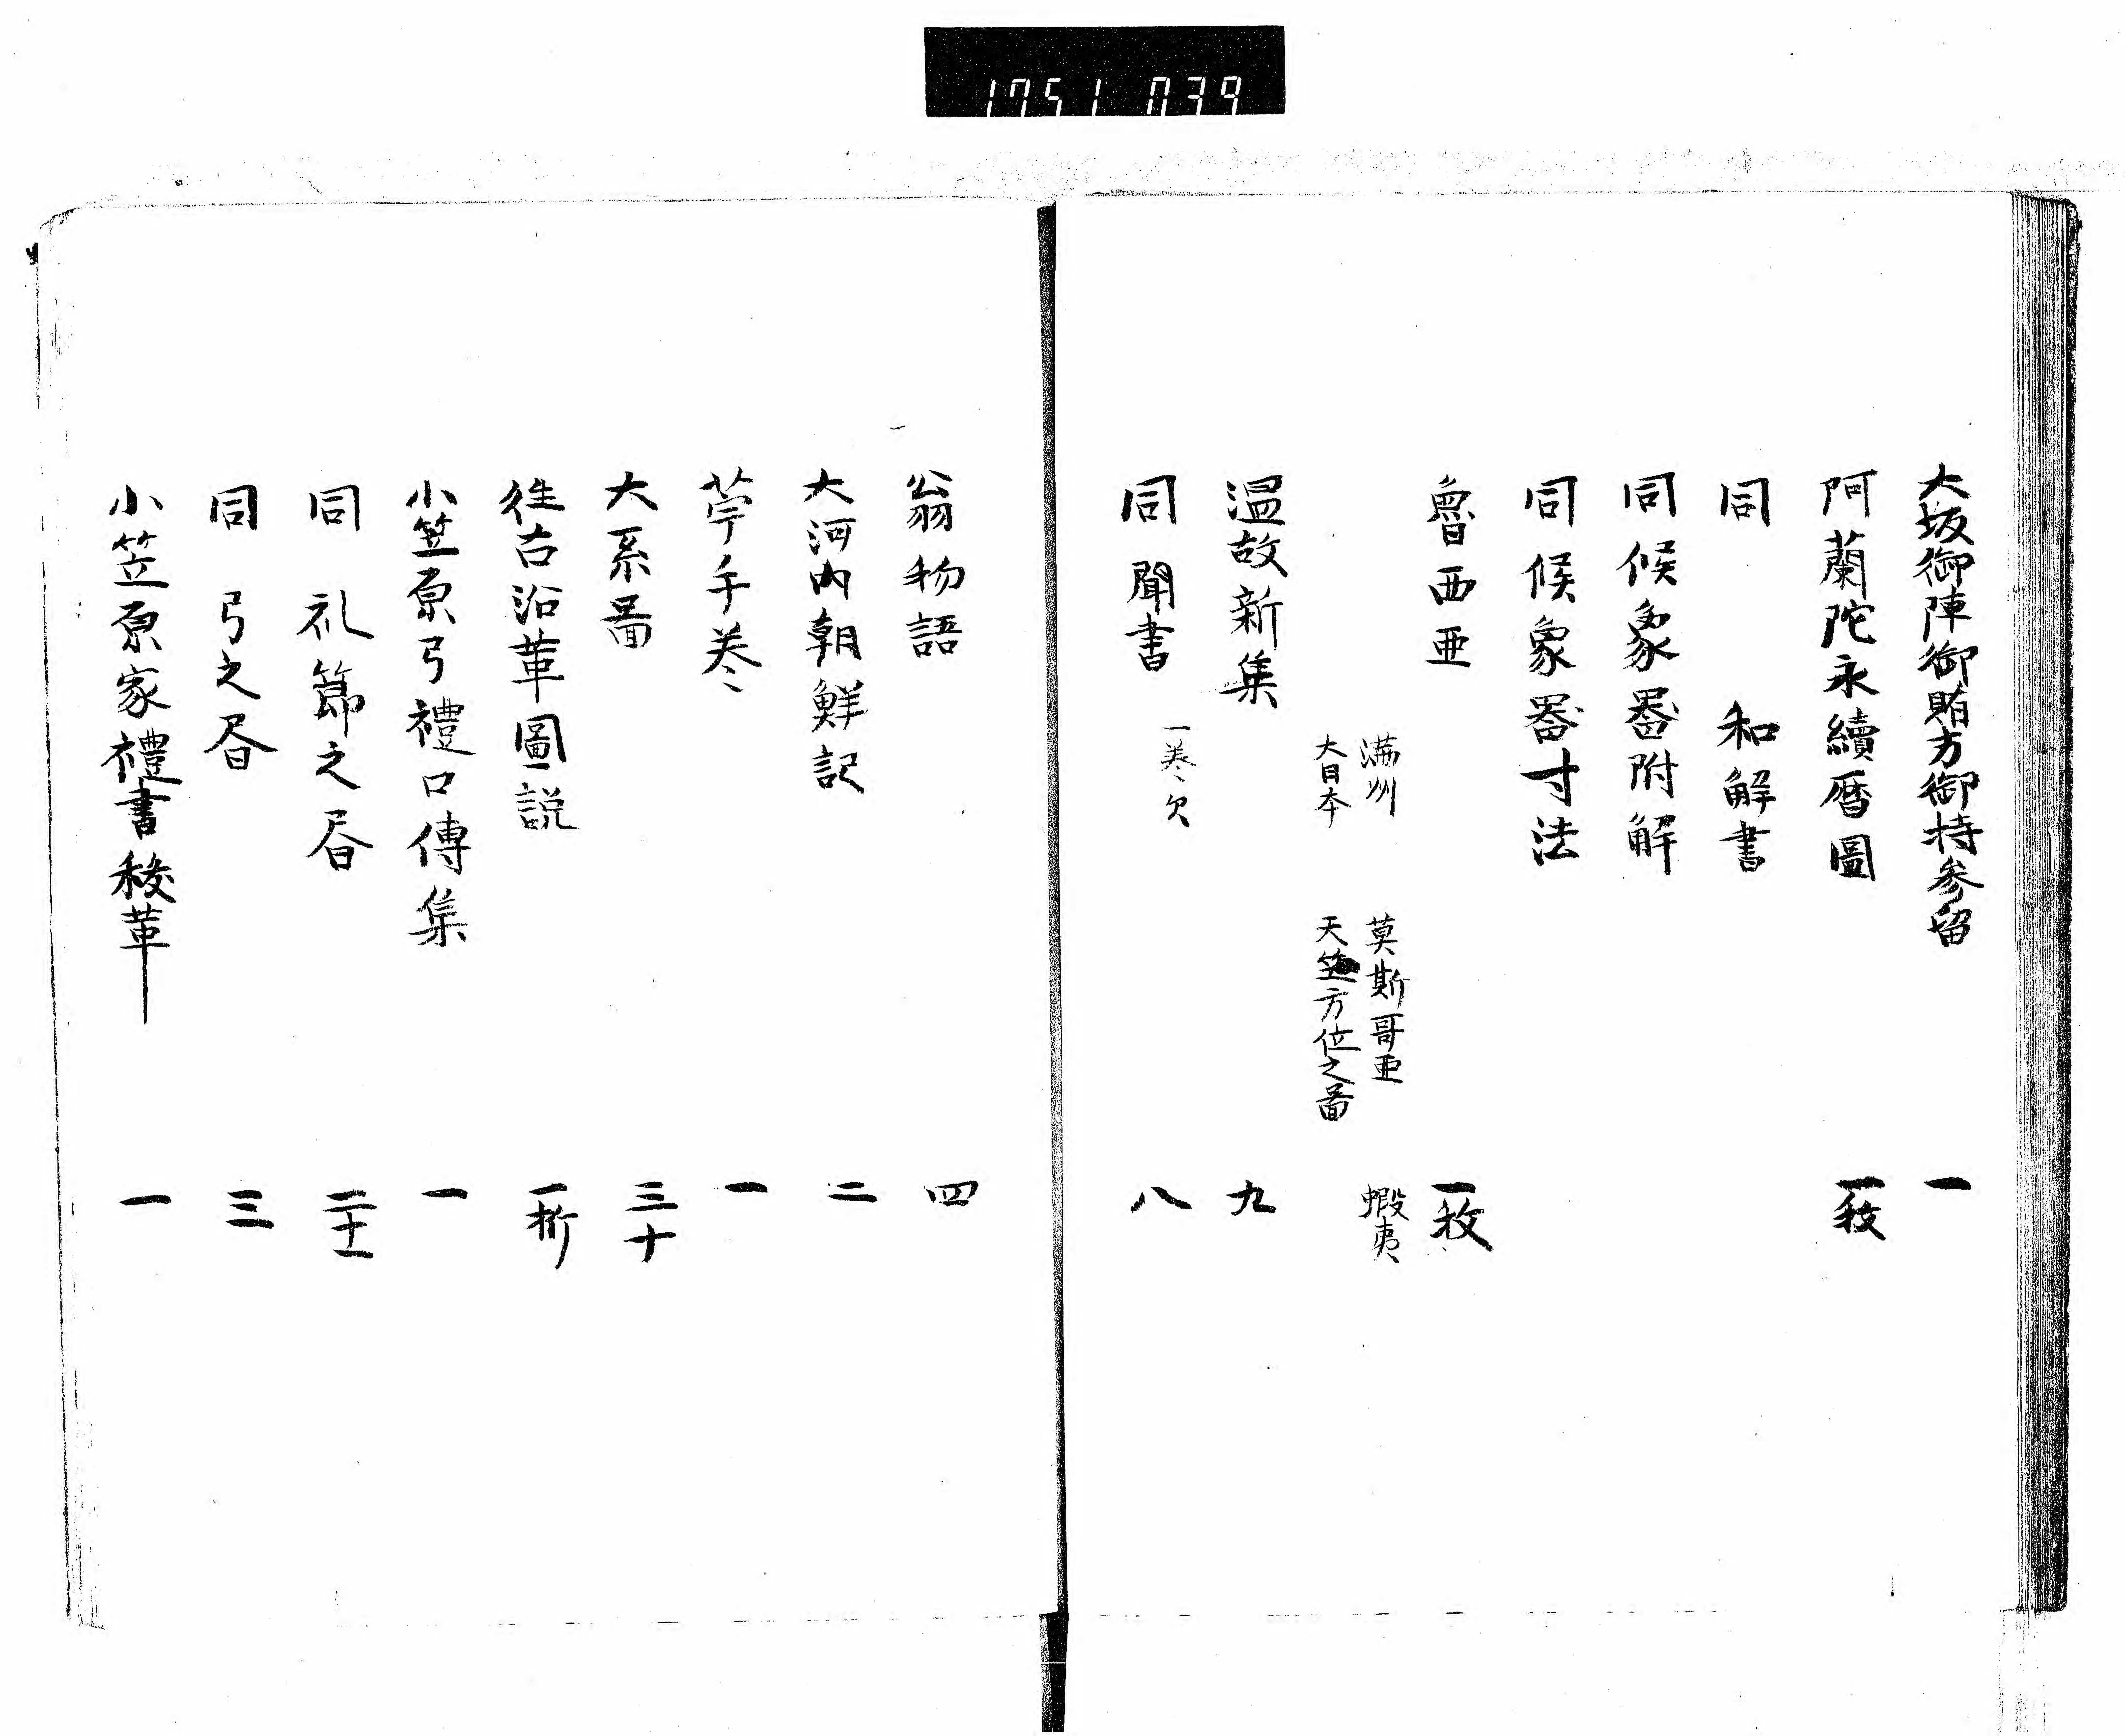 1751 039
大坂御陣御賄方御持参留 一
阿蘭陀永續暦圖 一枚
同 和解書
同候象器附解
同候象器寸法
魯西亜 一枚
満州 莫斯哥亜 蝦夷
大日本 天竺方位之啚
温故新集 九
同聞書 一巻欠 八
翁物語 四
大河内朝鮮記 二
苧手巻 一
大系啚 三十
徃古沿革圖説 一折
小笠原弓禮口傳集 一
同 礼節之昏 二十一
同 弓之昏 三
小笠原家禮書 一